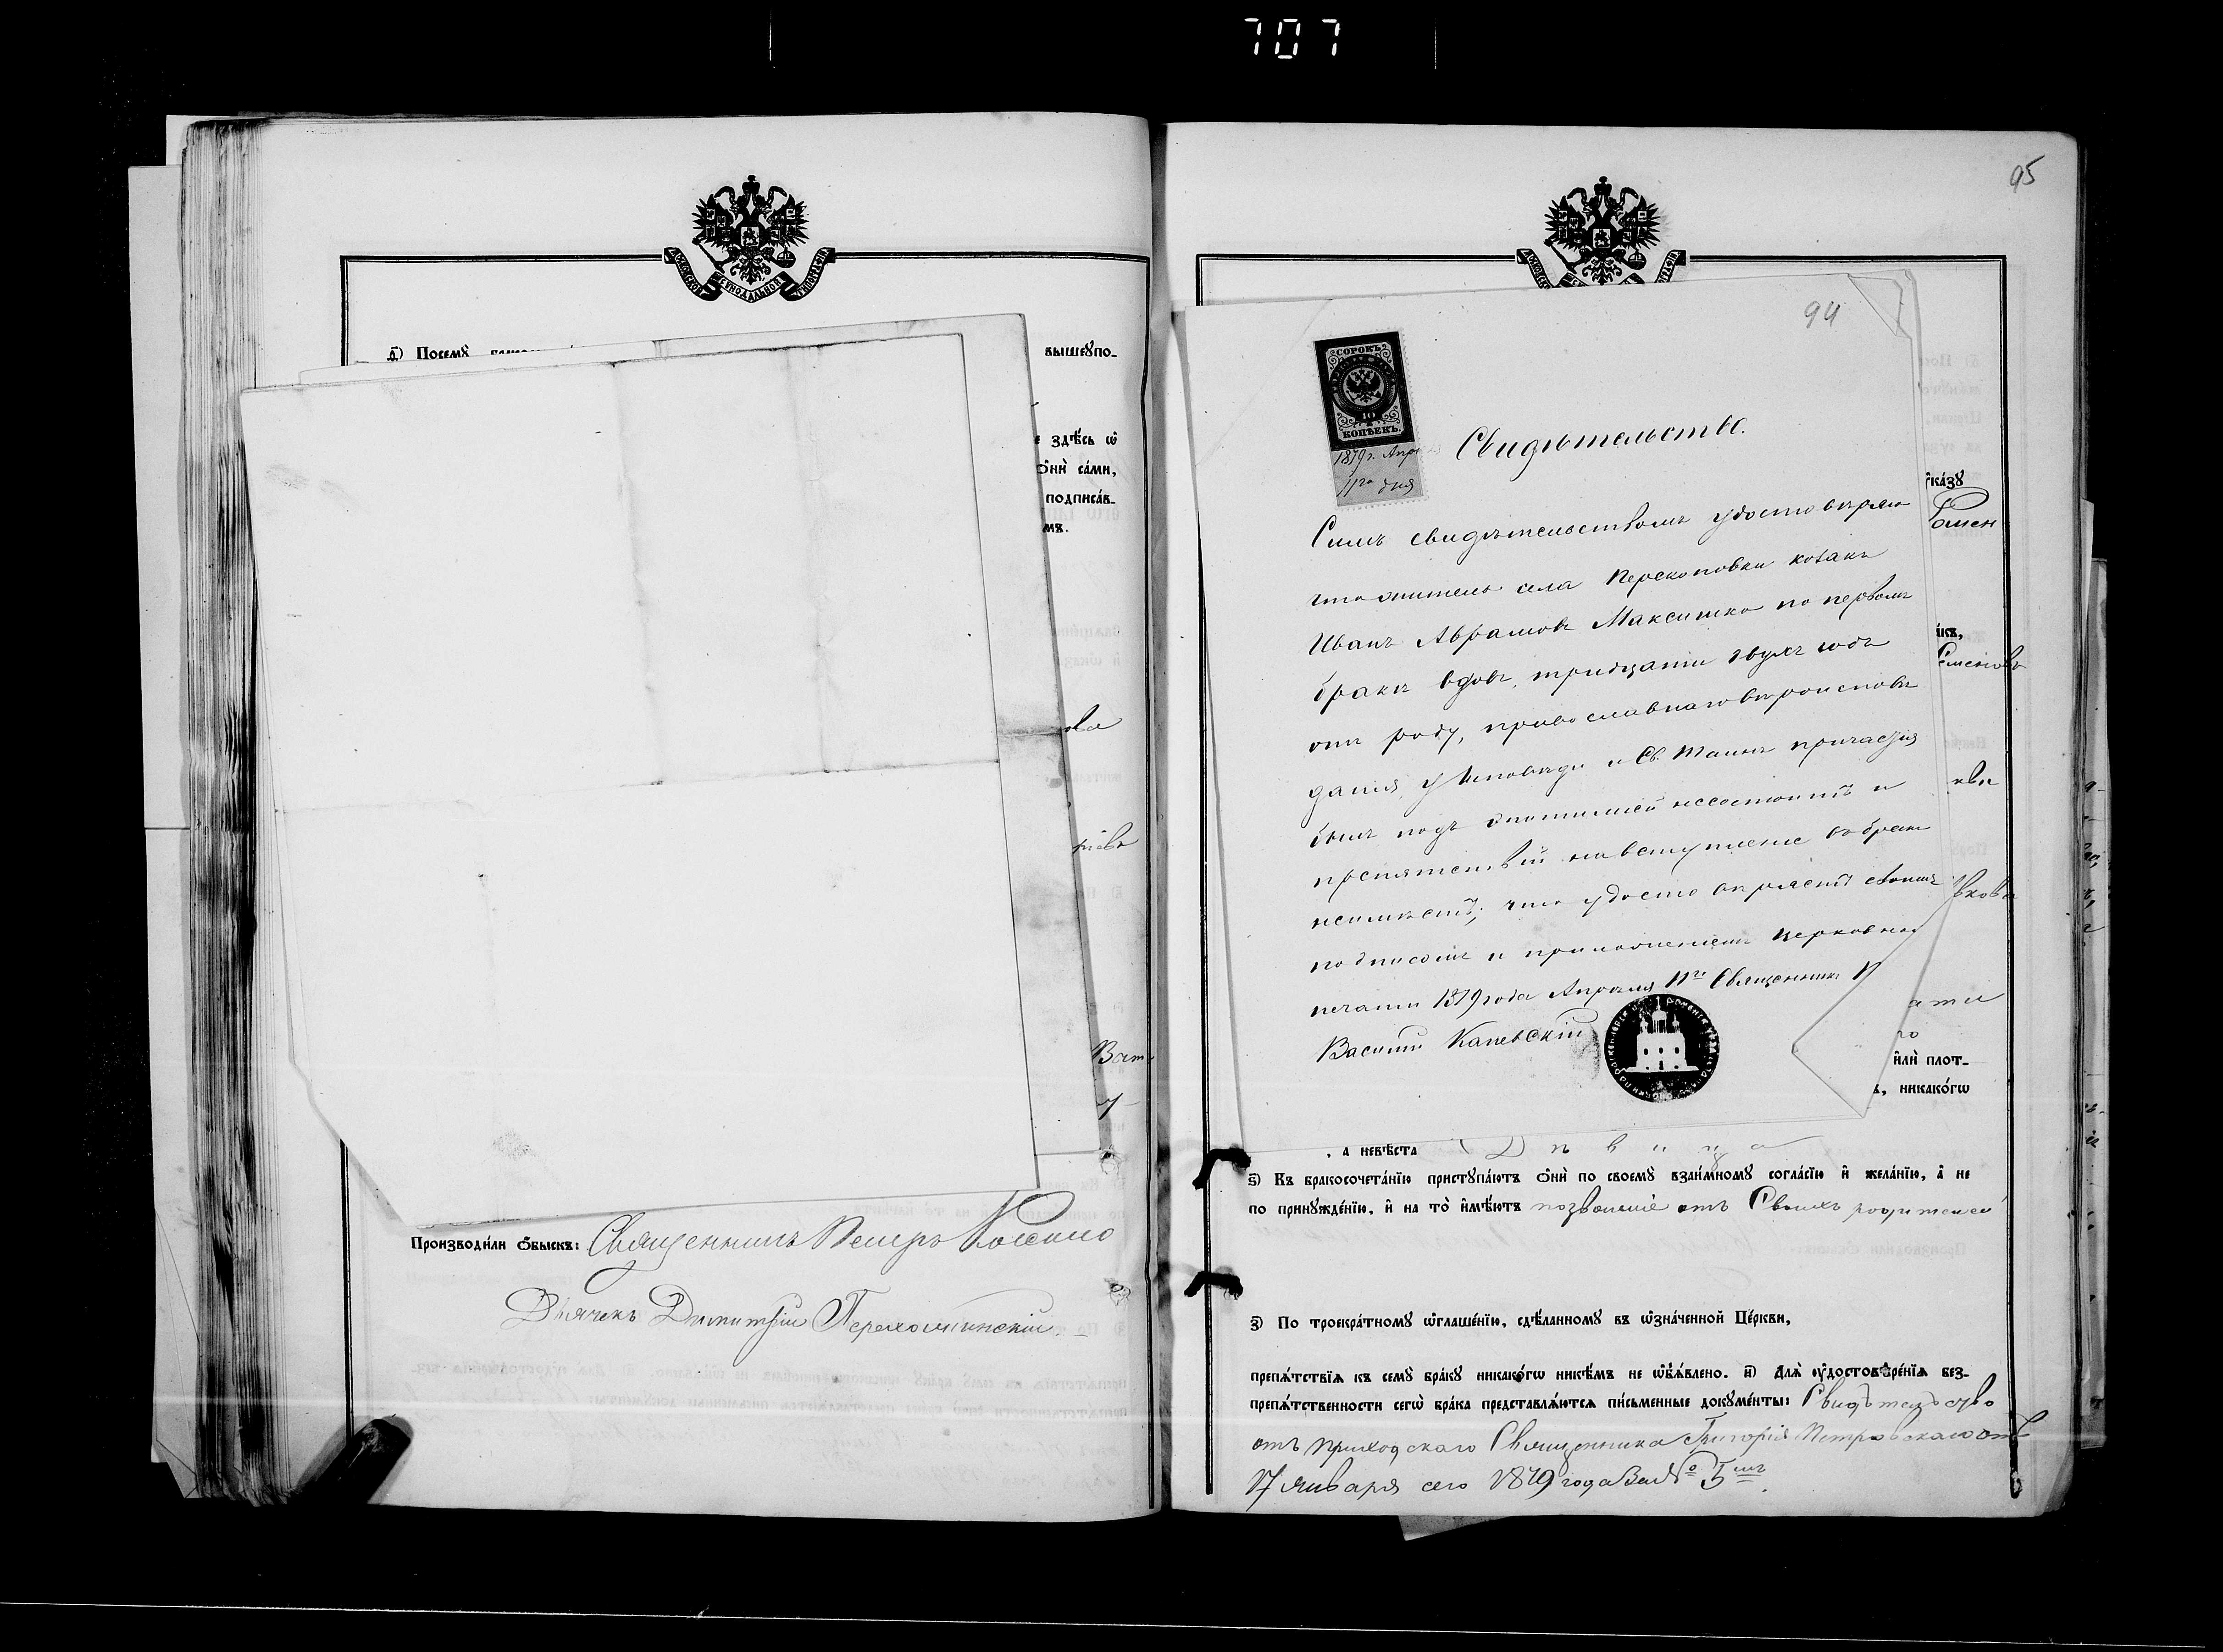 707
д҃) Посемꙋ
вышеꙋпо-
здѣсь ѡ
ѻни са́ми,
подписа́в-
мъ.
ова
Производи́ли ѻбыскъ: Священникъ Петръ
Дьячекъ Димитрій
95
94
СОРОКЪ
40
КОПѢЕКЪ.
1879 г. Апр
11го дня
Свидѣтельство.
Симъ свидѣтельствомъ удостовѣряю
что житель села Перекоповки козакъ
Иванъ Аврамовъ Максимко по первомъ
бракѣ вдовъ, тридцати двухъ годъ
отъ роду, православнаго вѣроисповѣ
данія, у исповѣди и Св. Таинъ причастія
былъ подъ эпитимией несостоитъ и
препятствій на вступленіе въ бракъ
неимѣетъ; что удостовѣряетъ своимъ
подписомъ и приложеніемъ церковной
печати 1879 года Апрѣля 11го Священникъ
Василій Каневскій
ꙋка́зꙋ
а́къ,
Семеновъ
и҆лѝ плот-
никако́гѡ
, а невѣ́ста Дѣвица
ѕ҃) Къ бракосочета́нїю пристꙋпа́ютъ ѻнѝ по своемꙋ̀ взаи́мномꙋ согла́сїю и҆ жела́нїю, а҆ не
по принꙋжде́нїю, и҆ на то̀ и҆мѣ́ютъ позволеніе отъ Своихъ родителей
з҃) По троекра́тномꙋ ѡглаше́нїю, сдѣ́ланномꙋ въ ѡзна́ченной Це́ркви,
препѧ́тствїѧ къ семꙋ̀ бра́кꙋ никако́гѡ никѣ́мъ не ѡб̾ѧ́влено. и҃) Длѧ̀ ᲂудостовѣре́нїѧ без-
препѧ́тственности сегѡ̀ бра́ка представлѧ́ютсѧ пи́сьменные докꙋме́нты: Свидѣтельство
отъ приходскаго Священника Григорія Петровскаго отъ
17 января сего 1879 года за № 5мъ.